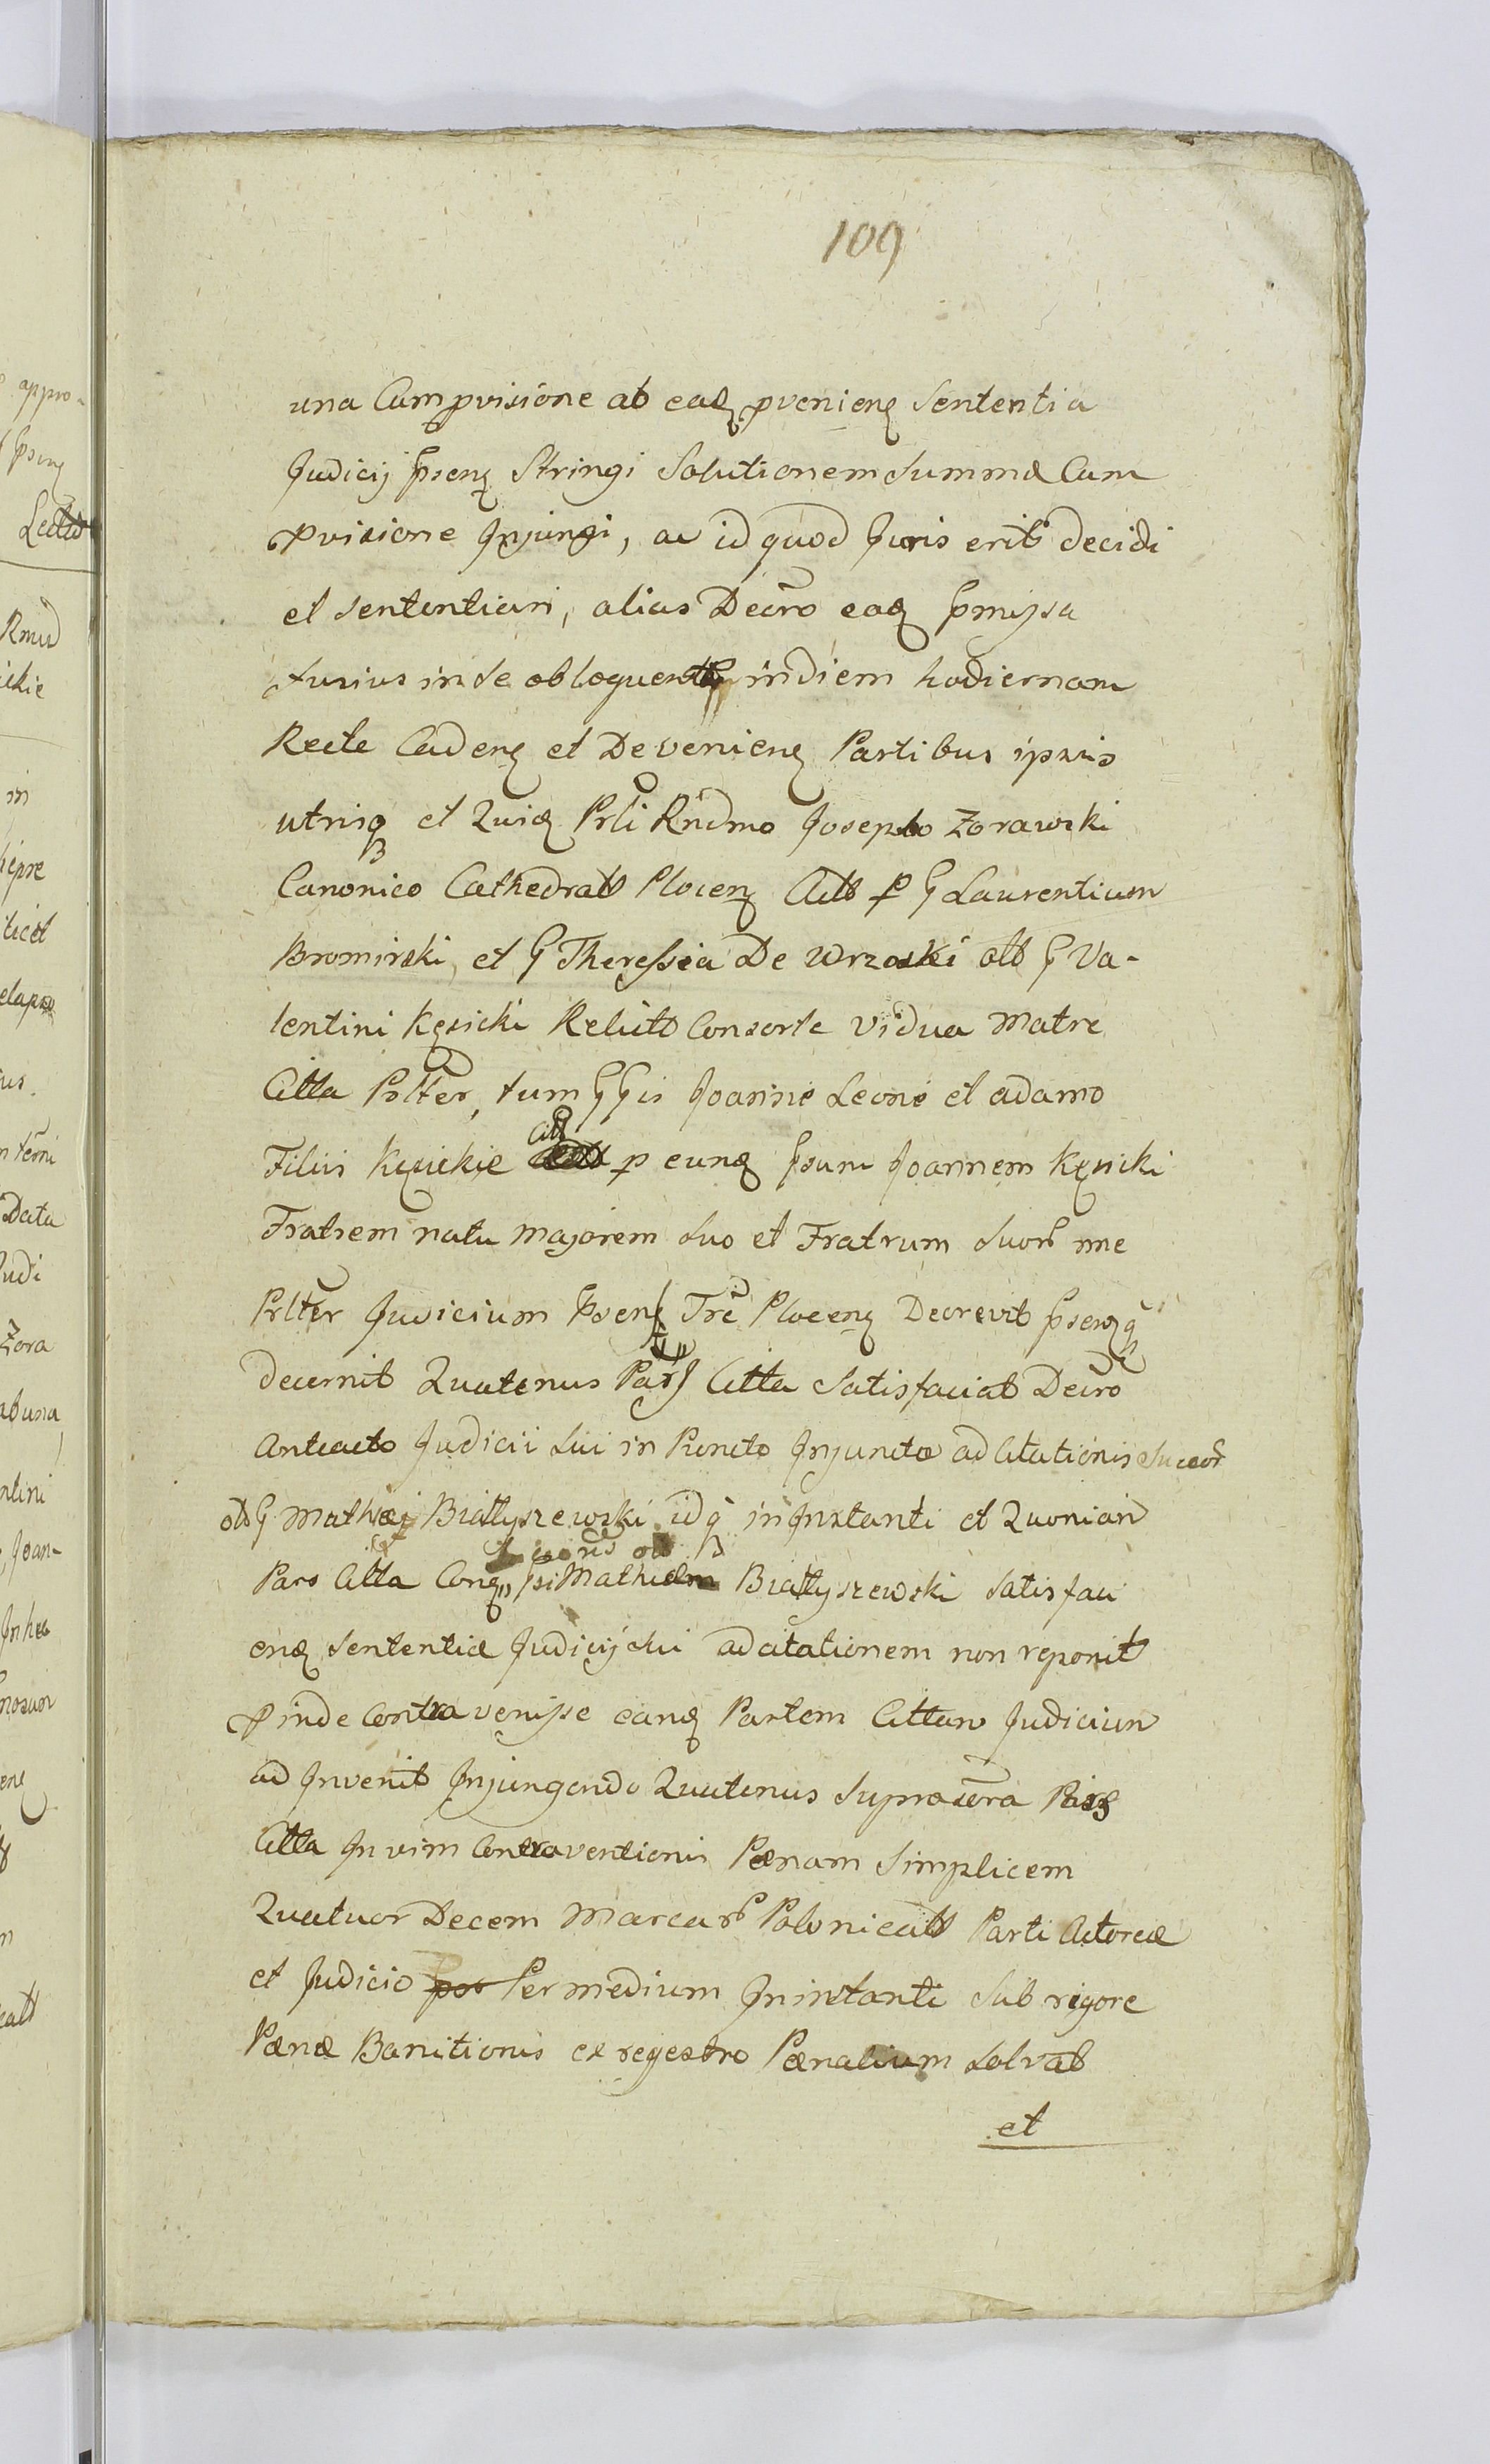 109
una Cum pvisione ab eadʒ pvenienʒ Sententia
Judicij Psenʒ Stringi Solutionem Summæ Cum
pvisione Injungi, ac id quod Juris erit decidi
et sententiari, alias Decro eadʒ pmissa
fusius in se obloquent in diem hodiernam
Recte Cadenʒ et Devenienʒ Partibus ipsis
utrisqʒ et Quidʒ Prli Rndmo Josepho Zorawski
Canonico Cathedrali Plocenʒ Act p G Laurentium
Bromirski, et G Theressia De Wrzoski olb G Va-
lentini Kęsicki Relict Consorte Vidua Matre
Citta Prlter, tum GGis Joanne Leone et adamo
Filiis Kęsickie Citt p eundʒ Psum Joannem Kęsicki
Fratrem natu majorem suo et Fratrum suor nne
Prlter Judicium Psenʒ Tre Plocenʒ Decrevit Psenʒqʒ
decernit Quatenus Pars Citta Satisfaciat Decro
Anteacto Judicii sui in Puncto Injunctæ adcitationis Succor
olb G Mathiæ Białłyszewski idqʒ in Instanti et Quoniam
Pars Citta Conʒ Mathiam Białłyszewski satisfaci
enʒ sententiæ Judicij sui adcitationem non reponit
pinde Contra venisse eandʒ Partem Cittam Judicium
ad Invenit Injungendo Quatenus Suprascra Pars
Citta In vim Contraventionis Pænam Simplicem
Quatuor Decem Marcar Polonicall Parti Actoreæ
et Judicio Per medium In instanti sub rigore
Pænæ Banitionis ex regestro Pænalium solvat
et
appro-
Psenʒ
Rmd
ickie
in
ticet
us
Data
Judi
Zora
abuna
ntini
Joan-
In hec